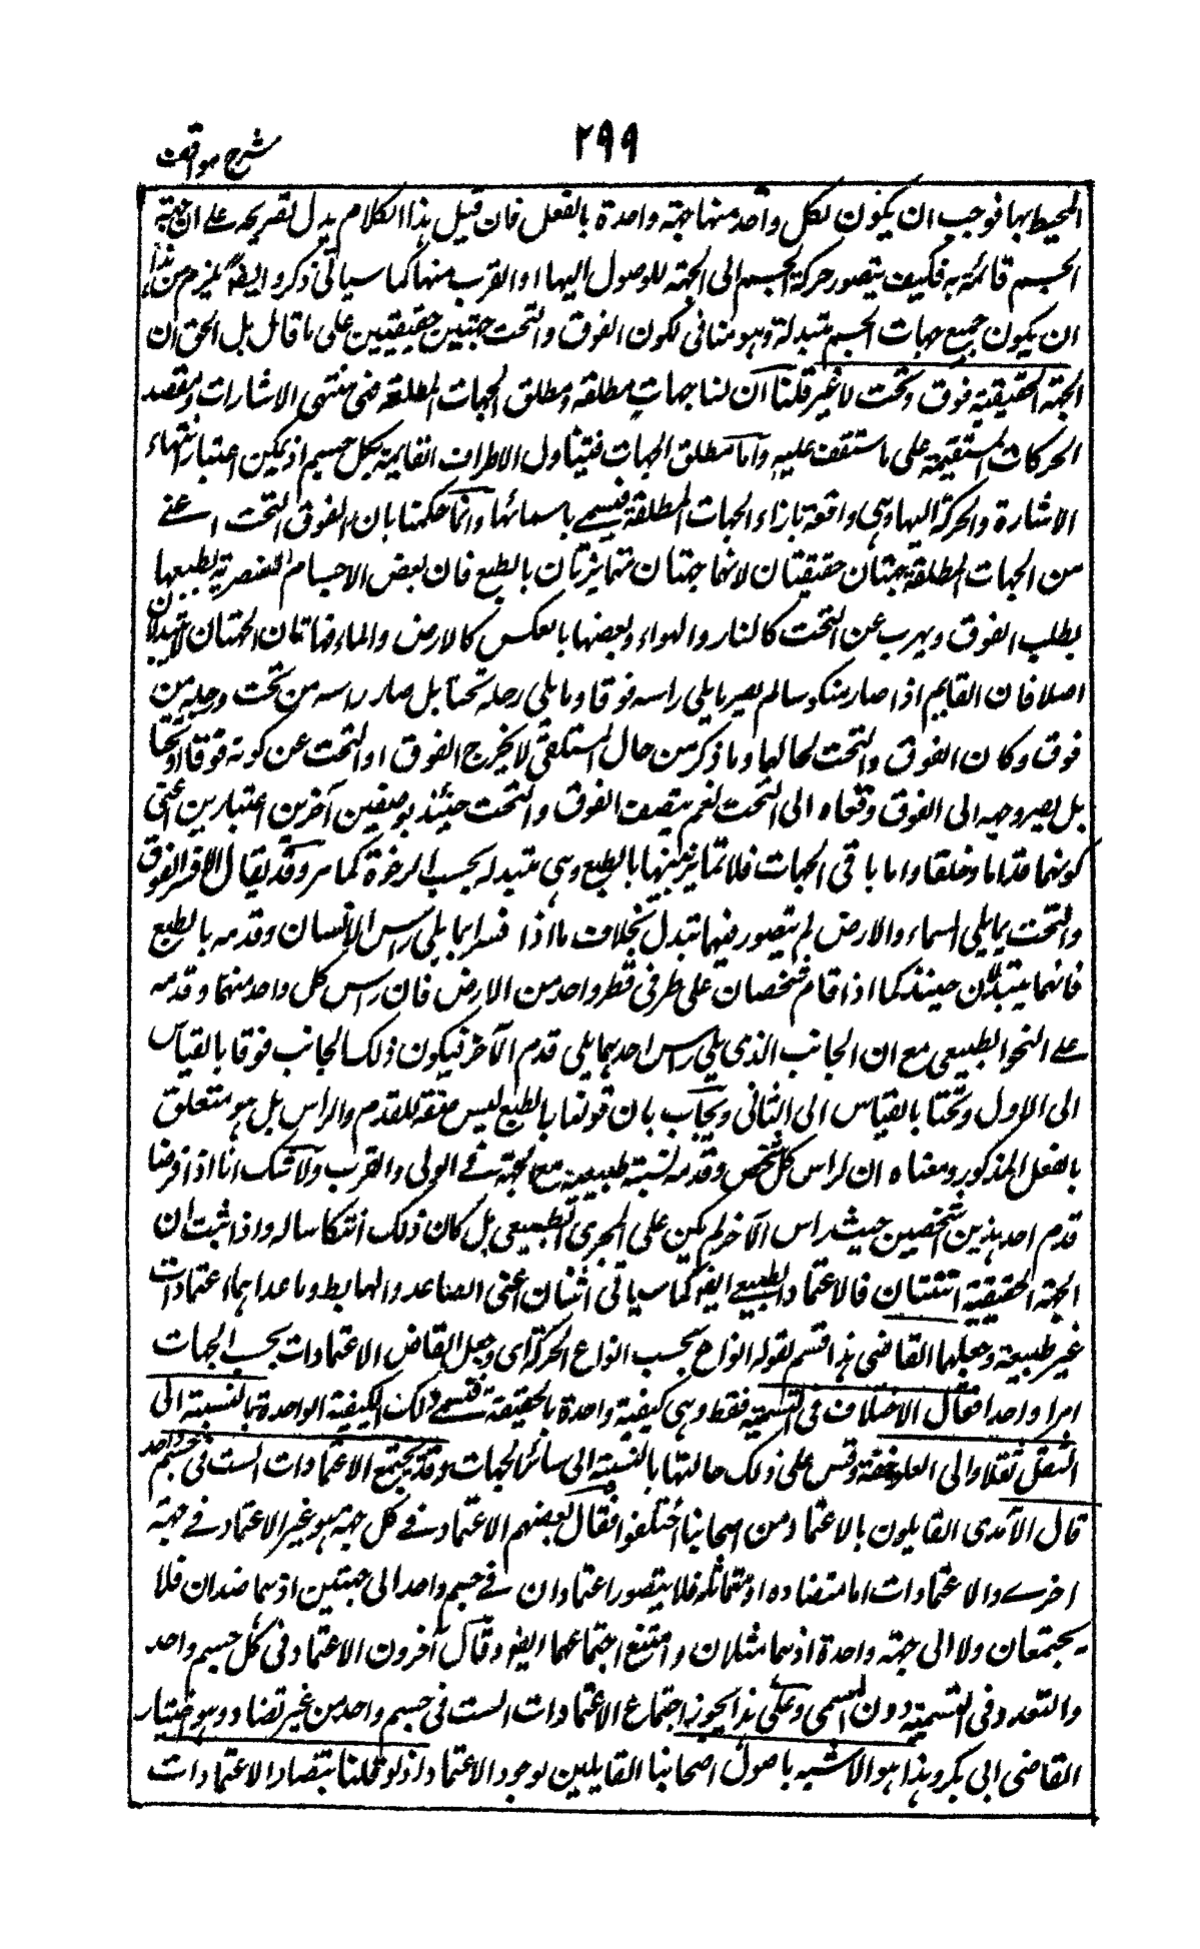 ٢٩٩
شرح مواقف
المحيط بها فوجب ان يكون لكل واحد منها جهة واحدة بالفعل فان قيل هذا الكلام يدل بصريحه على ان جهة
الجسم قائمة به فكيف يتصور حركة الجسم الى الجهة للوصول اليها او القرب منها كما سياتى ذكره وايضا يلزم من هذا
ان يكون جميع جهات الجسم متبدلة وهو منافى لكون الفوق والتحت جهتين حقيقيتين على ما قال بل الحق ان
الجهة الحقيقية فوق وتحت لا غير قلنا ان لنا جهات مطلقة ومطلق الجهات المطلقة فهى منتهى الاشارات ومقصد
الحركات المستقيمة على ما ستقف عليه واما مطلق الجهات فيتناول الاطراف القايمة بكل جسم اذ يمكن اعتبار انتهاء
الاشارة والحركة اليها وهى واقعة بازاء الجهات المطلقة فيسمى باسمائها وانما حكمنا بان الفوق والتحت اعنى
من الجهات المطلقة جهتان حقيقيتان لانهما جهتان متمايزتان بالطبع فان بعض الاجسام العنصرية بطبعها
يطلب الفوق ويهرب عن التحت كالنار والهواء وبعضها بالعكس كالارض والماء فهاتان الجهتان لا تتبدلان
اصلا فان القايم اذا صار منكوسا لم يصر ما يلى راسه فوقا وما يلى رجله تحتا بل صار راسه من تحت ورجله من
فوق وكان الفوق والتحت لحالهما وما ذكر من حال المستلقى لا يخرج الفوق او التحت عن كونه فوقا او تحتا
بل يصير وجهه الى الفوق وقفاه الى التحت نعم يتصف الفوق والتحت حينئذ بوصفين آخرين اعتباريين اعنى
كونهما قداما وخلفا واما باقى الجهات فلا تمايز بينها بالطبع وهى متبدلة بحسب الرخوة كما مر وقد يقال اذا فسر الفوق
والتحت بما يلى السماء والارض لم يتصور فيهما تبدل بخلاف ما اذا فسرا بما يلى راس الانسان وقدمه بالطبع
فانهما يتبدلان حينئذ كما اذا قام شخصان على طرفى قطر واحد من الارض فان راس كل واحد منهما وقدمه
على النحو الطبيعى مع ان الجانب الذى يلى راس احدهما يلى قدم الآخر فيكون ذلك الجانب فوقا بالقياس
الى الاول وتحتا بالقياس الى الثانى ويجاب بان قولنا بالطبع ليس صفة للقدم والراس بل هو متعلق
بالفعل المذكور ومعناه ان لراس كل شخص وقدمه نسبة طبيعية مع الجهة فى الولى والقرب ولا شك انا اذا فرضنا
قدم احد هذين شخصين حيث راس الآخر لم يكن على المجرى الطبيعى بل كان ذلك انتكاسا له واذا ثبت ان
الجهة الحقيقية اثنتان فالاعتماد الطبيعى ايضا كما سياتى اثنان اعنى الصاعد والهابط وما عداهما اعتمادات
غير طبيعية وجعلها القاضى هذا قسم لقوله انواع بحسب انواع الحركة اى وجعل القاضى الاعتمادات بحسب الجهات
امرا واحدا فقال الاختلاف فى التسمية فقط وهى كيفية واحدة بالحقيقة فتسمى تلك الكيفية الواحدة بالنسبة الى
السفل ثقلا والى العلو خفة وقس على ذلك حالتها بالنسبة الى سائر الجهات وقد يجتمع الاعتمادات الست فى جسم واحد
قال الآمدى القايلون بالاعتماد من اصحابنا اختلفوا فقال بعضهم الاعتماد فى كل جهة هو غير الاعتماد فى جهة
اخرى والاعتمادات اما متضادة او متماثلة فلا يتصور اعتمادان فى جسم واحد الى جهتين اذ هما ضدان فلا
يجتمعان ولا الى جهة واحدة اذ هما مثلان وامتنع اجتماعهما ايضا وقال آخرون الاعتماد فى كل جسم واحد
والتعدد فى التسمية دون المسمى وعلى هذا يجوز اجتماع الاعتمادات الست فى جسم واحد من غير تضاد وهو اختيار
القاضى ابى بكر وهذا هو الاشبه باصول اصحابنا القايلين بوجود الاعتماد اذ لو قلنا بتضاد الاعتمادات